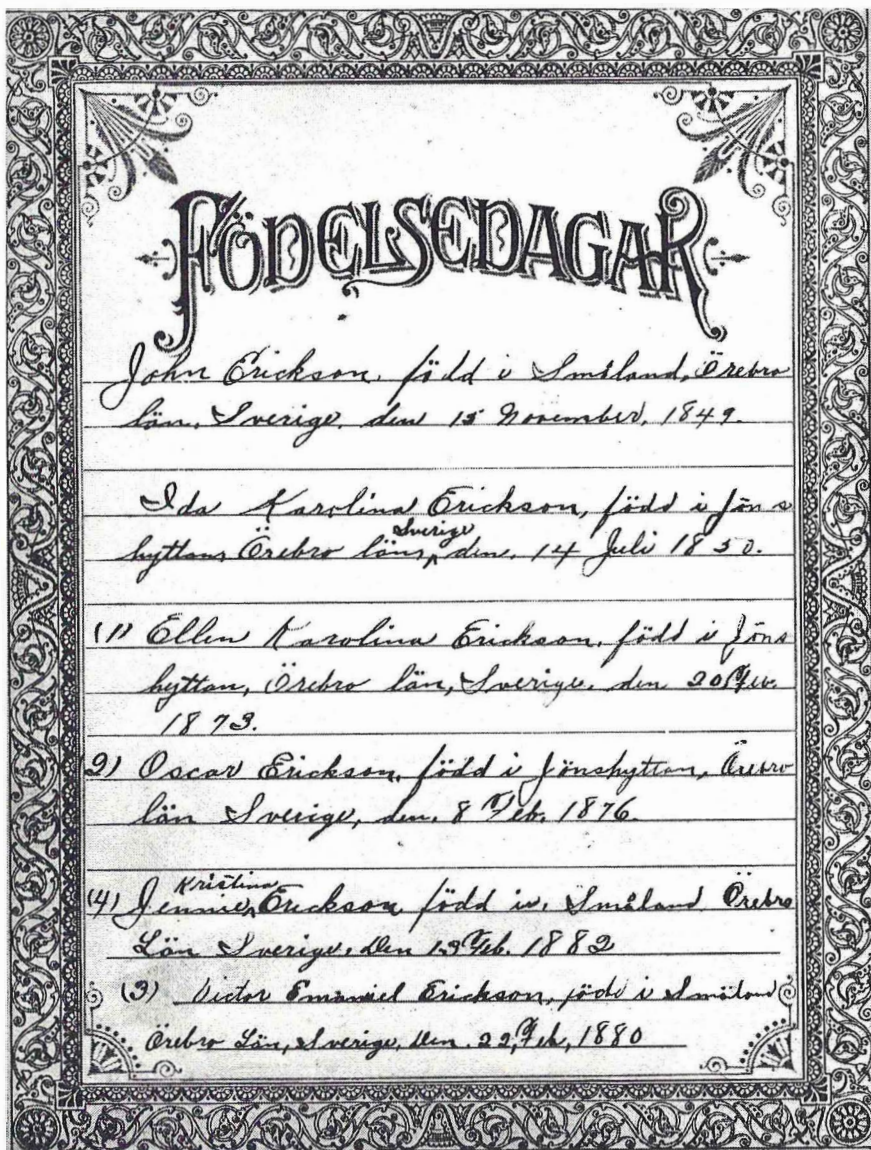 FÖDELSEDAGAR
John Erickson, född i Småland, Örebro
län, Sverige, den 15 November, 1849.
Ida Karolina Erickson, född i Jöns
hyttans Örebro läns, Sverige den, 14 Juli 1850.
(1) Ellen Karolina Erickson, född i Jöns
hyttan, Örebro län, Sverige, den 20 Feb.
1873.
(2) Oscar Erickson, född i Jönshyttan, Örebro
län Sverige, den, 8 Feb. 1876.
(4) Jennie Kristina Erickson född i, Småland Örebro
Län Sverige, Den 13 Feb. 1882
(3) Victor Emanuel Erickson, född i Småland
Örebro Län, Sverige, Den. 22, Feb, 1880